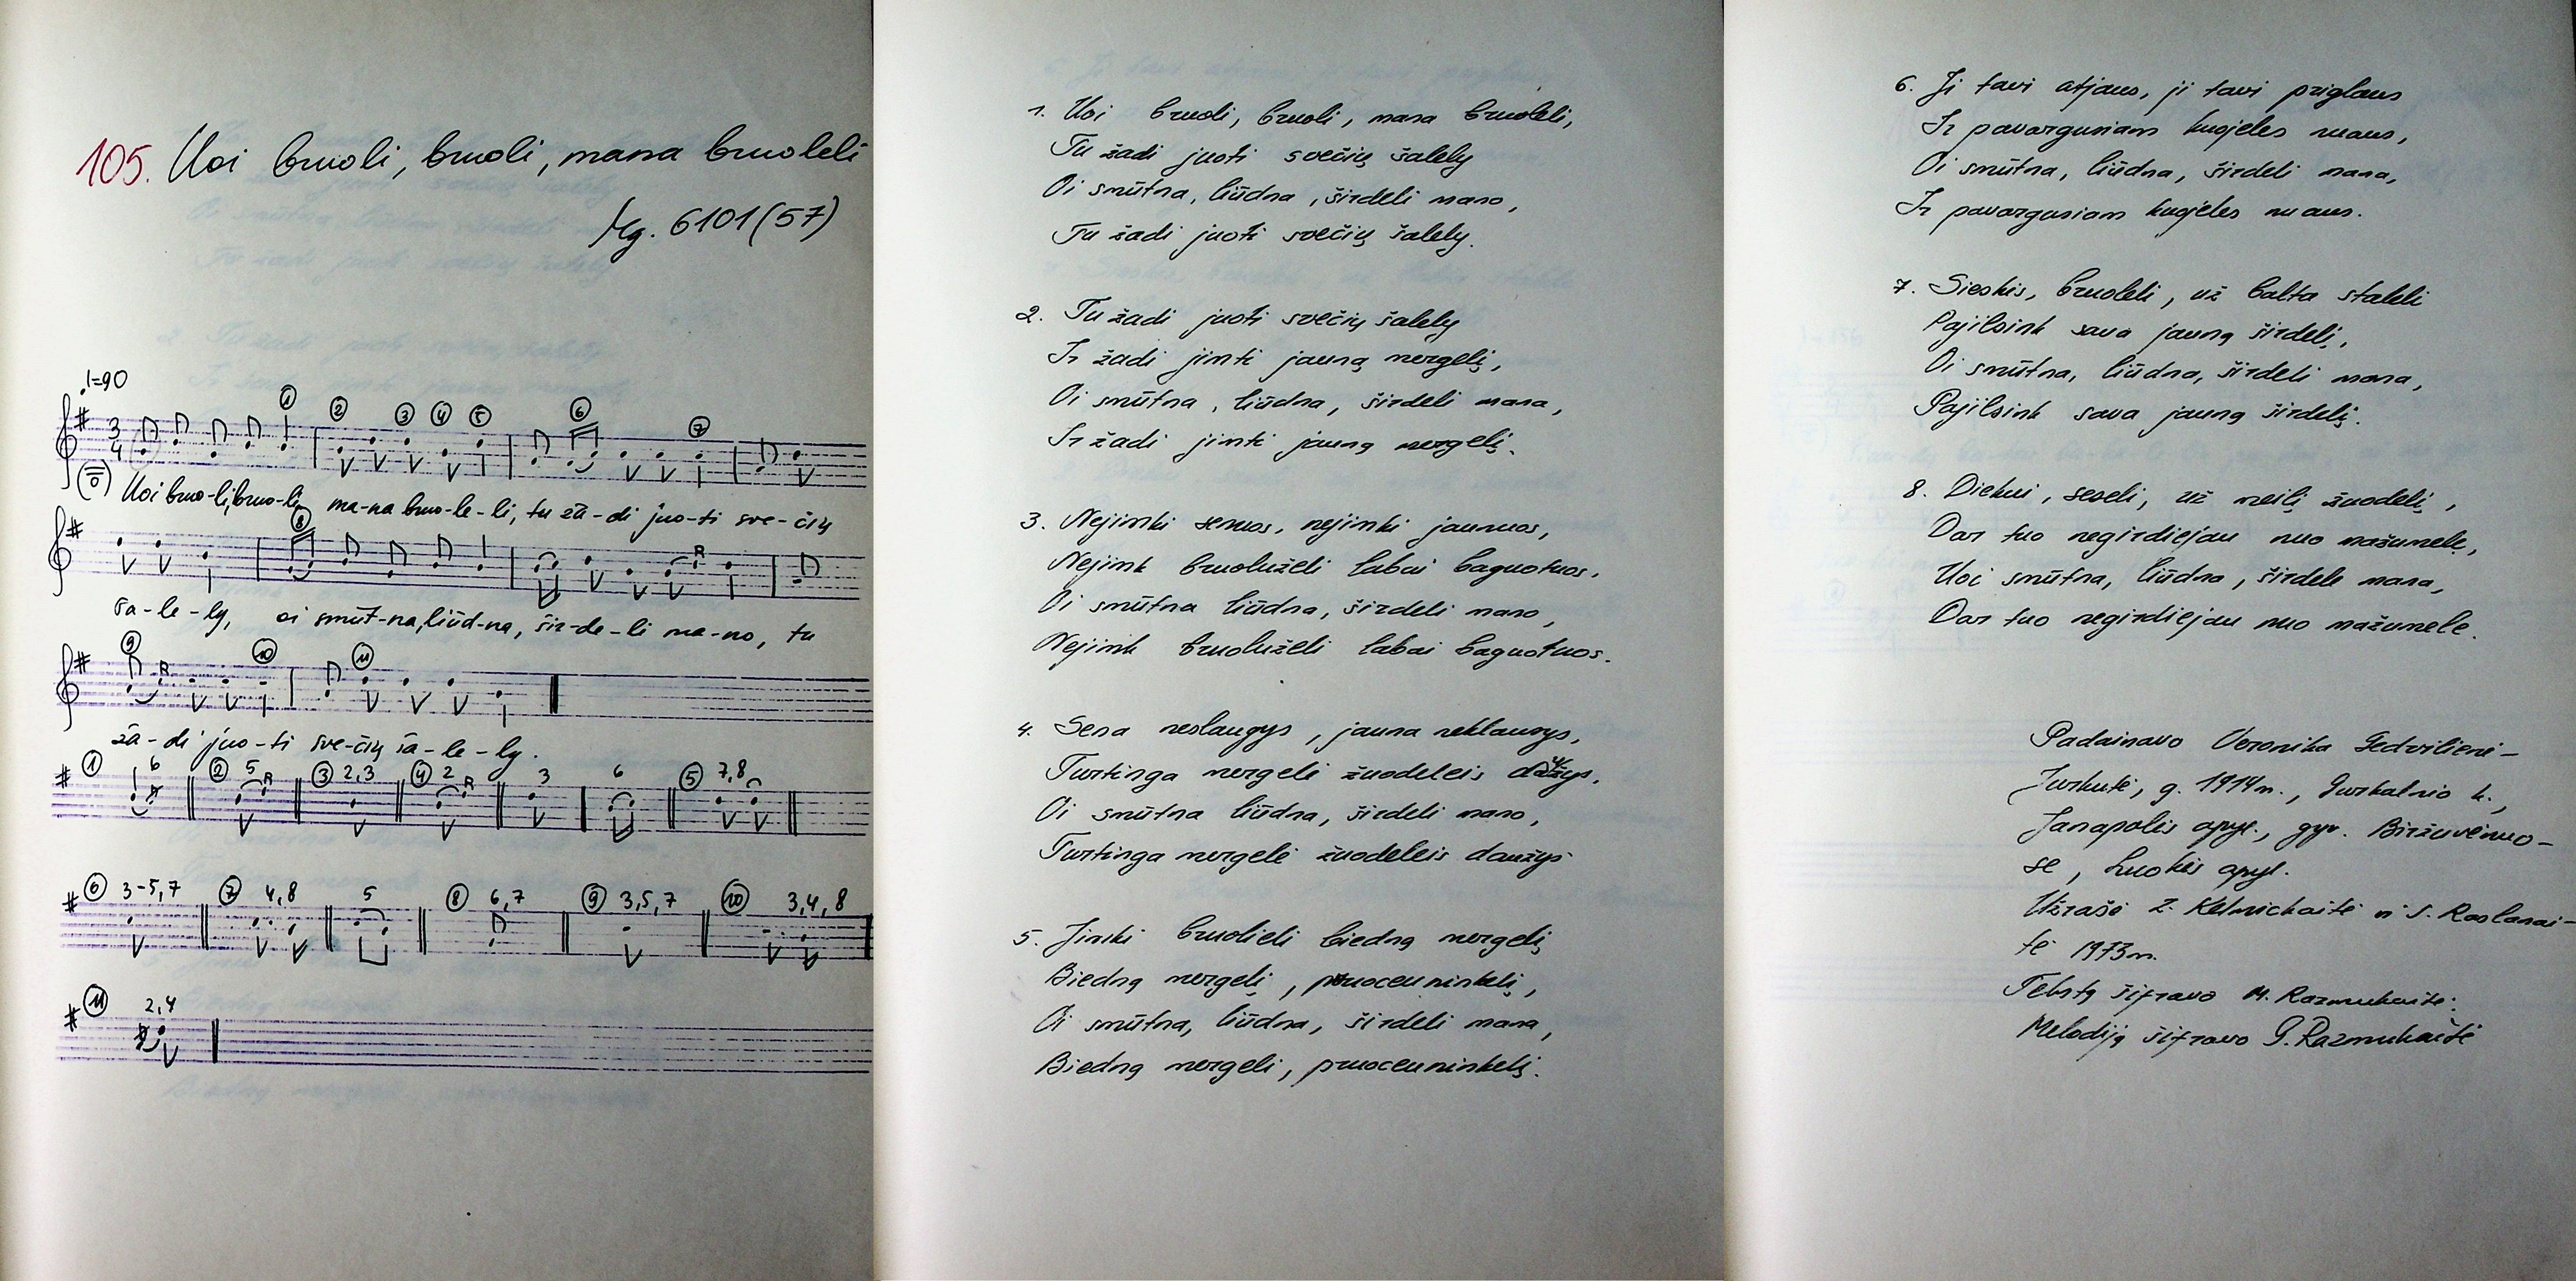 105. Uoi bruoli, bruoli, mana bruoleli
Mg. 6101(57)
♩=90
① ② ③ ④ ⑤ ⑥ ⑦
3
4
Uoi bruo-li, bruo-li, ma-na bruo-le-li, tu žā-di juo-ti sve-čių
⑧
ša-le-ly, oi smūt-na, liūd-na, šir-de-li ma-no, tu
⑨ ⑩ ⑪
žā-di juo-ti sve-čių ša-le-ly.
① 6 ② 5 ③ 2,3 ④ 2 3 6 ⑤ 7,8
⑥ 3-5,7 ⑦ 4,8 5 ⑧ 6,7 ⑨ 3,5,7 ⑩ 3,4,8
⑪ 2,4
1. Uoi bruoli, bruoli, mana bruoleli,
Tu žadi juoti svečių šalely
Oi smūtna, liūdna, širdeli mano,
Tu žadi juoti svečių šalely.
2. Tu žadi juoti svečių šalely
Ir žadi jimti jauną mergelį,
Oi smūtna, liūdna, širdeli mana,
Ir žadi jimti jauną mergelį.
3. Nejimki senuos, nejimki jaunuos,
Nejimk bruolužėli labai baguotuos.
Oi smūtna liūdna, širdeli mano,
Nejimk bruolužėli labai baguotuos.
4. Sena neslaugys, jauna neklausys,
Turtinga mergelė žuodeleis daužys.
Oi smūtna liūdna, širdeli mano,
Turtinga mergelė žuodeleis daužys
5. Jimki bruolieli biedną mergelį
Biedną mergelį, pruoceuninkelį,
Oi smūtna, liūdna, širdeli mana,
Biedną mergelį, pruoceuninkelį.
6. Ji tavi atjaus, ji tavi priglaus
Ir pavargusiam kuojeles nuaus,
Oi smūtna, liūdna, širdeli mana,
Ir pavargusiam kuojeles nuaus.
7. Sieskis, bruoleli, už balta staleli
Pajilsink sava jauną širdelį,
Oi smūtna, liūdna, širdeli mana,
Pajilsink sava jauną širdelį.
8. Diekui, seseli, už meilį žuodelį,
Dar tuo negirdiejau nuo mažumelė,
Uoi smūtna, liūdna, širdele mana,
Dar tuo negirdiejau nuo mažumele.
Padainavo Veronika Gedvilienė-
Jurkutė, g. 1914m., Gurkalnio k.,
Janapolės apyl., gyv. Biržuvėnuo-
se, Luokės apyl.
Užrašė Z. Kelmickaitė ir S. Raslanai-
tė 1973m.
Tekstą šifravo M. Razmukaitė.
Melodiją šifravo G. Razmukaitė